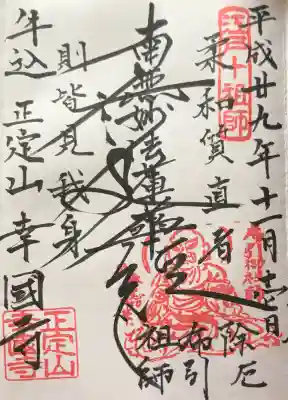 平成廿九年十一月十七日
江戸十祖師
柔和質直者
除厄
布引
祖師
南無妙法蓮華経
則皆見我身
牛込 正定山 幸國寺
正定山
幸國寺